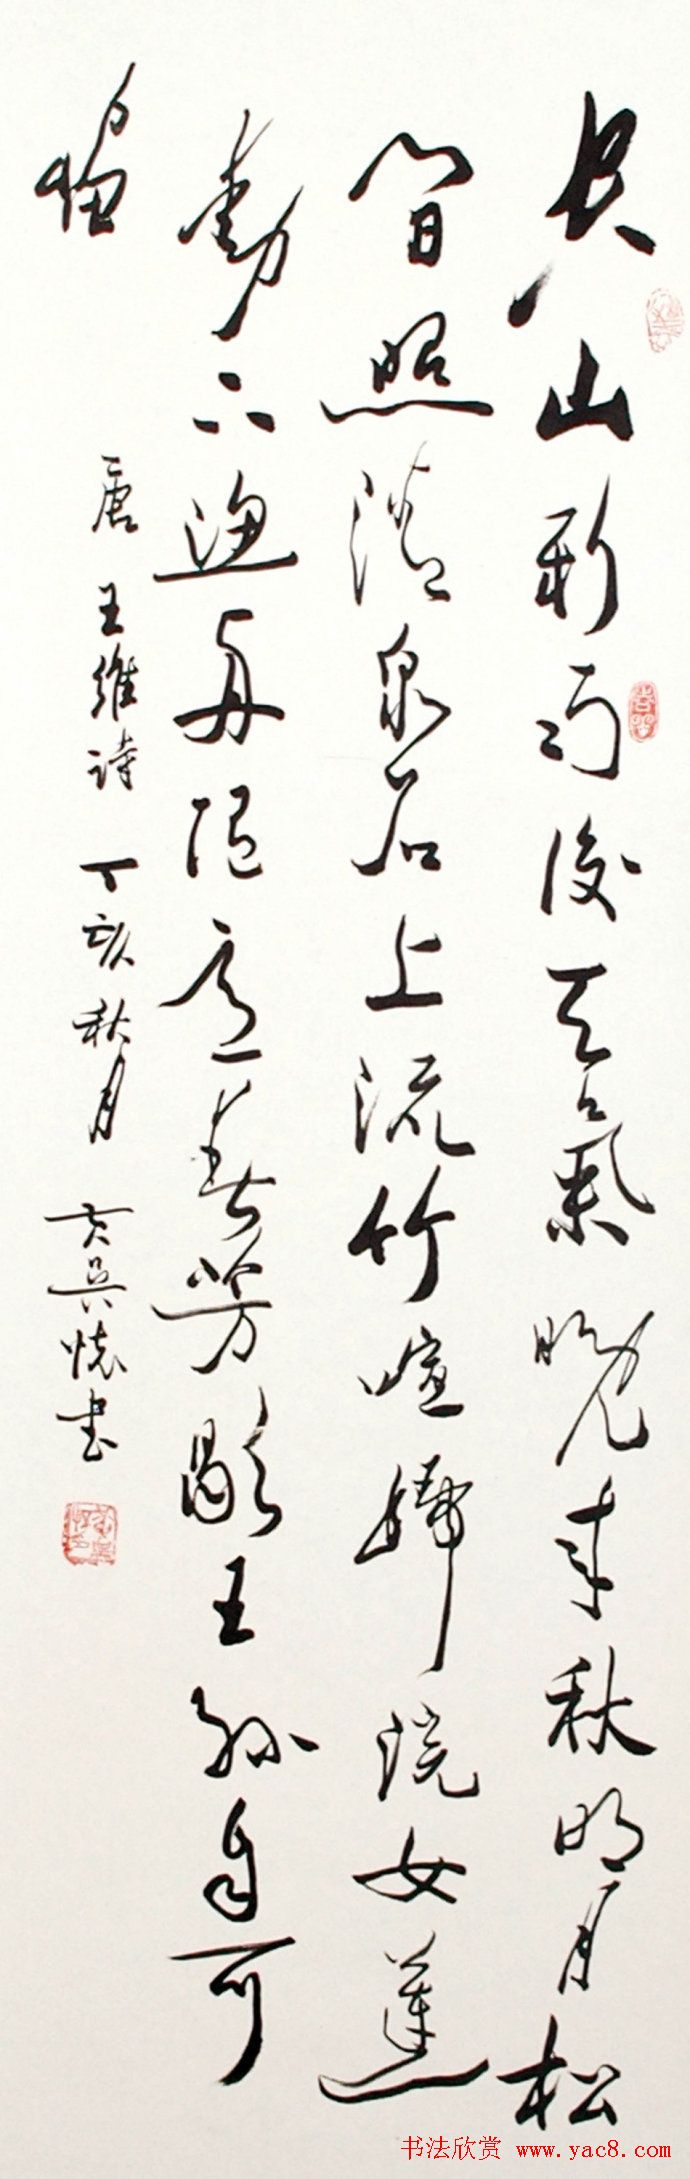 空山新雨後天氣晚來秋明月松
間照清泉石上流竹喧歸浣女蓮
動下漁舟隨意春芳歇王孫自可
留
唐 王維詩 丁亥秋月 懷書
书法欣赏 www.yac8.com